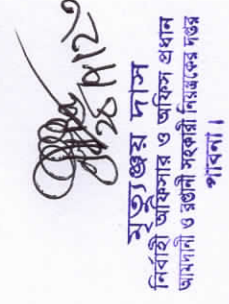 ২৪/৭/২০
মৃত্যুঞ্জয় দাস
নির্বাহী অফিসার ও অফিস প্রধান
আমদানী ও রপ্তানী সহকারী নিয়ন্ত্রকের দপ্তর
পাবনা।